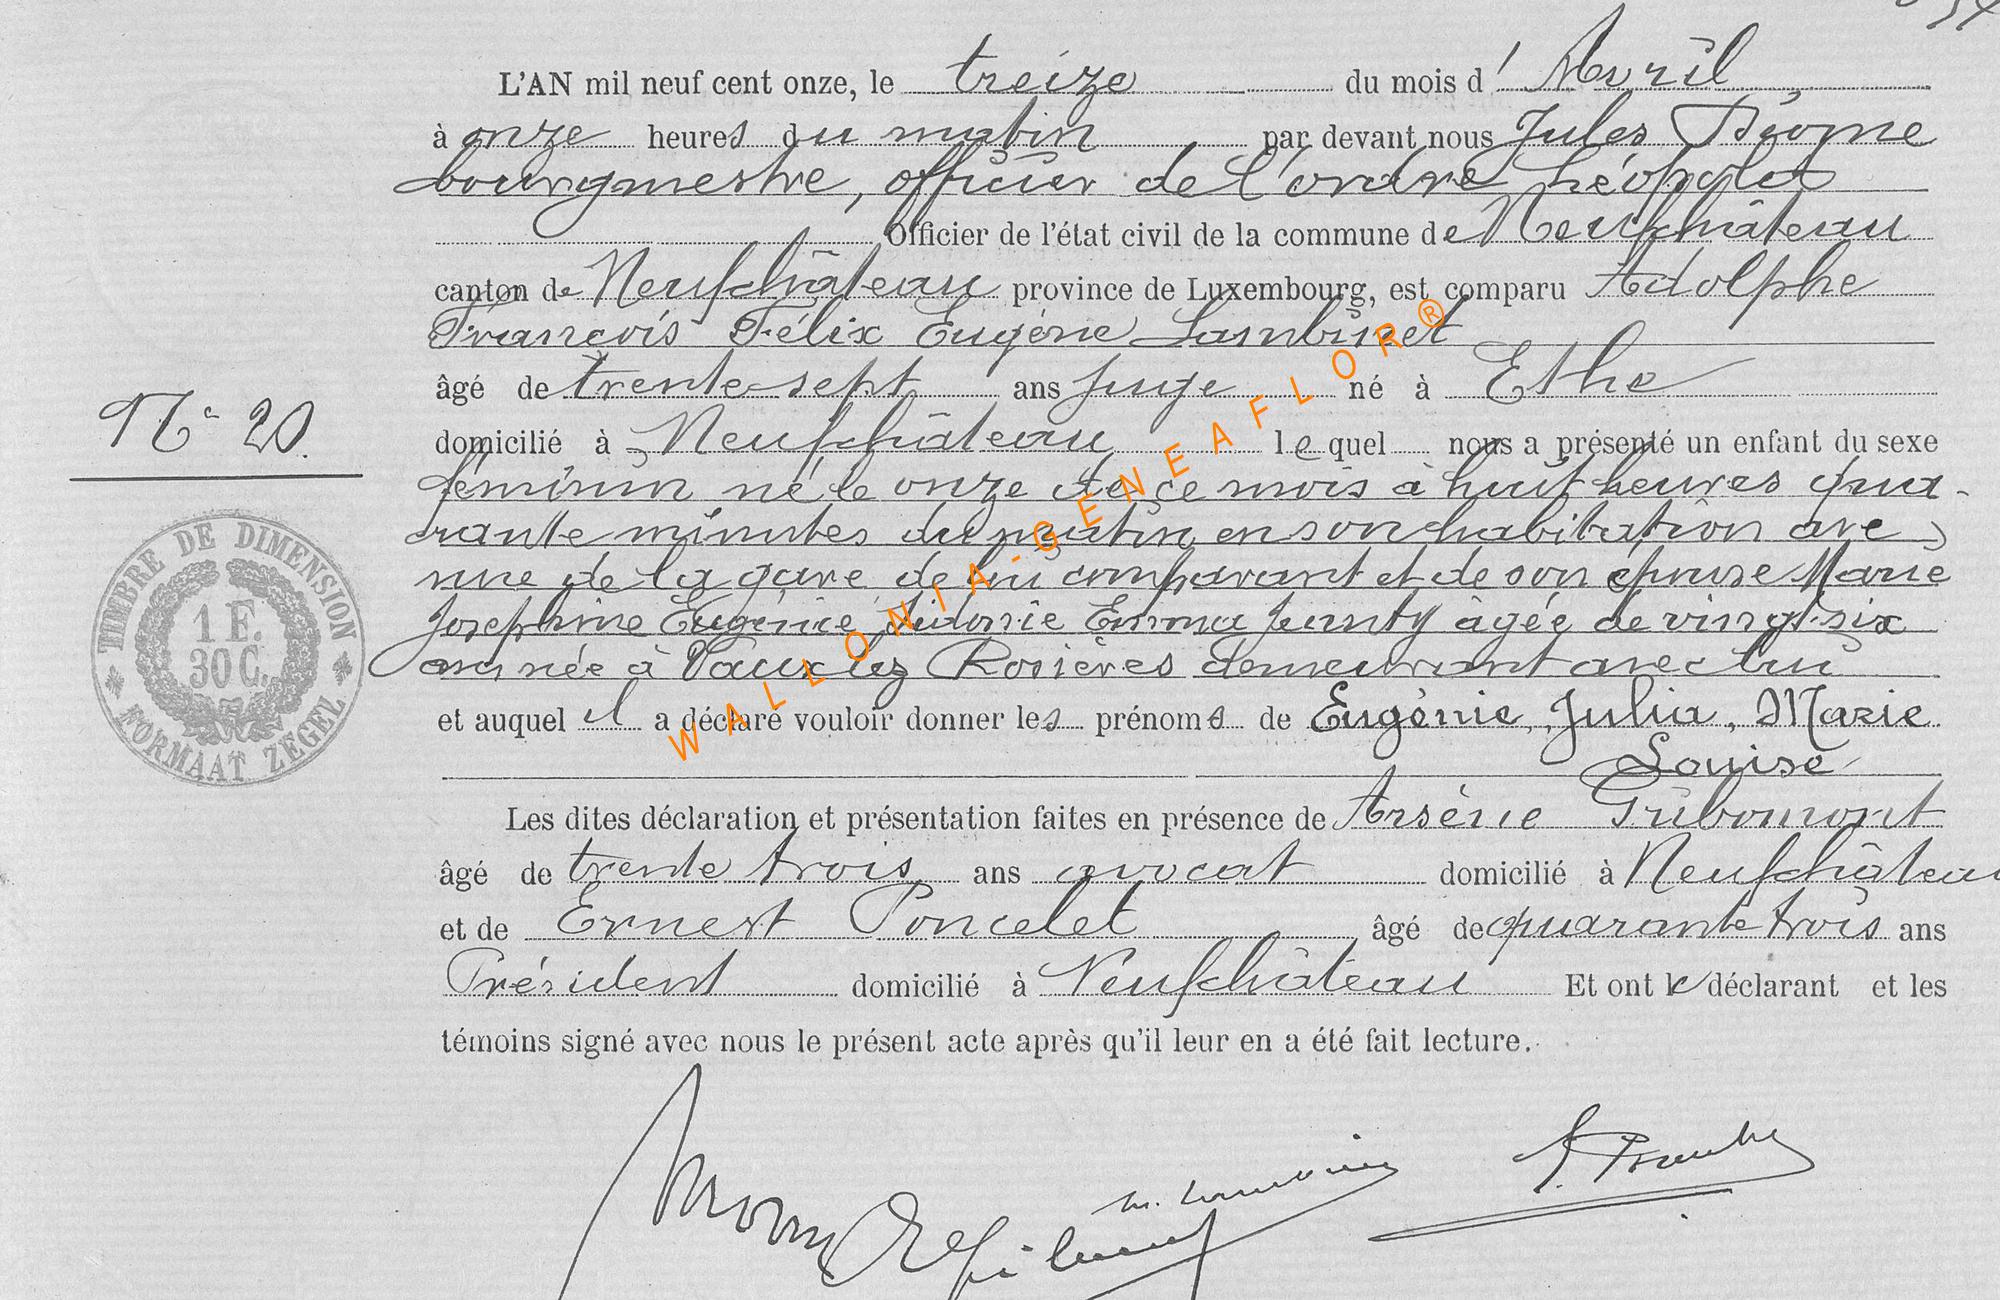 L'AN mil neuf cent onze, le treize du mois d'Avril
à onze heures du matin par devant nous Jules
bourgmestre, officier de l'ordre Léopold
Officier de l'état civil de la commune de Neufchâteau
canton de Neufchâteau province de Luxembourg, est comparu Adolphe
François Félix Eugène Lambinet
âgé de trente-sept ans juge né à Ethe
domicilié à Neufchâteau lequel nous a présenté un enfant du sexe
féminin né le onze de ce mois à huit heures qua-
rante minutes du matin en son habitation ave
nue de la gare de lui comparant et de son épouse Marie
Joséphine Eugénie Sidonie Emma âgée de vingt-six
ans née à Vaux lez Rosières demeurant avec lui
et auquel il a déclaré vouloir donner les prénoms de Eugénie, Julia, Marie
Louise
Les dites déclaration et présentation faites en présence de Arsène Gribomont
âgé de trente trois ans avocat domicilié à Neufchâteau
et de Ernest Poncelet âgé de quarante trois ans
Président domicilié à Neufchâteau Et ont le déclarant et les
témoins signé avec nous le présent acte après qu'il leur en a été fait lecture.
N° 20.
TIMBRE DE DIMENSION
1 F.
30 C.
FORMAAT ZEGEL
WALLONIA-GENEAFLOR®